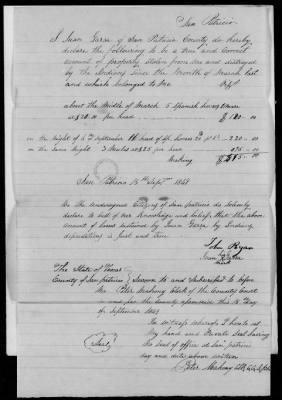 San Patricio
I Juan Garza of San Patricio County do hereby
declare the following to be a true and correct
account of property stolen from me and destroyed
by the Indians since the Month of March last
and which belonged to me
about the Middle of March 5 Spanish horses
at $20.00 per head
on the Night of 2d September 11 head of Sp. horses 20 pr hd 220.00
on the Same Night 3 Mules at $25 per head
Making
San Patricio Septr 1848
We the undersigned Citizens of San Patricio do solemnly
declare to best of our Knowledge and belief, that the above
amount of losses sustained by Juan Garza by Indian
depredations is just and true.
John Ryan
his
mark
The State of Texas
County of San Patricio
Sworn to and Subscribed to before
me Peter Mahony Clerk of the County Court
in and for the County aforesaid this Day
of September 1848
In witness whereof I hereto set
My hand and Private Seal having
no Seal of office at San Patricio
day and date above written
Seal
Peter Mahony Clk